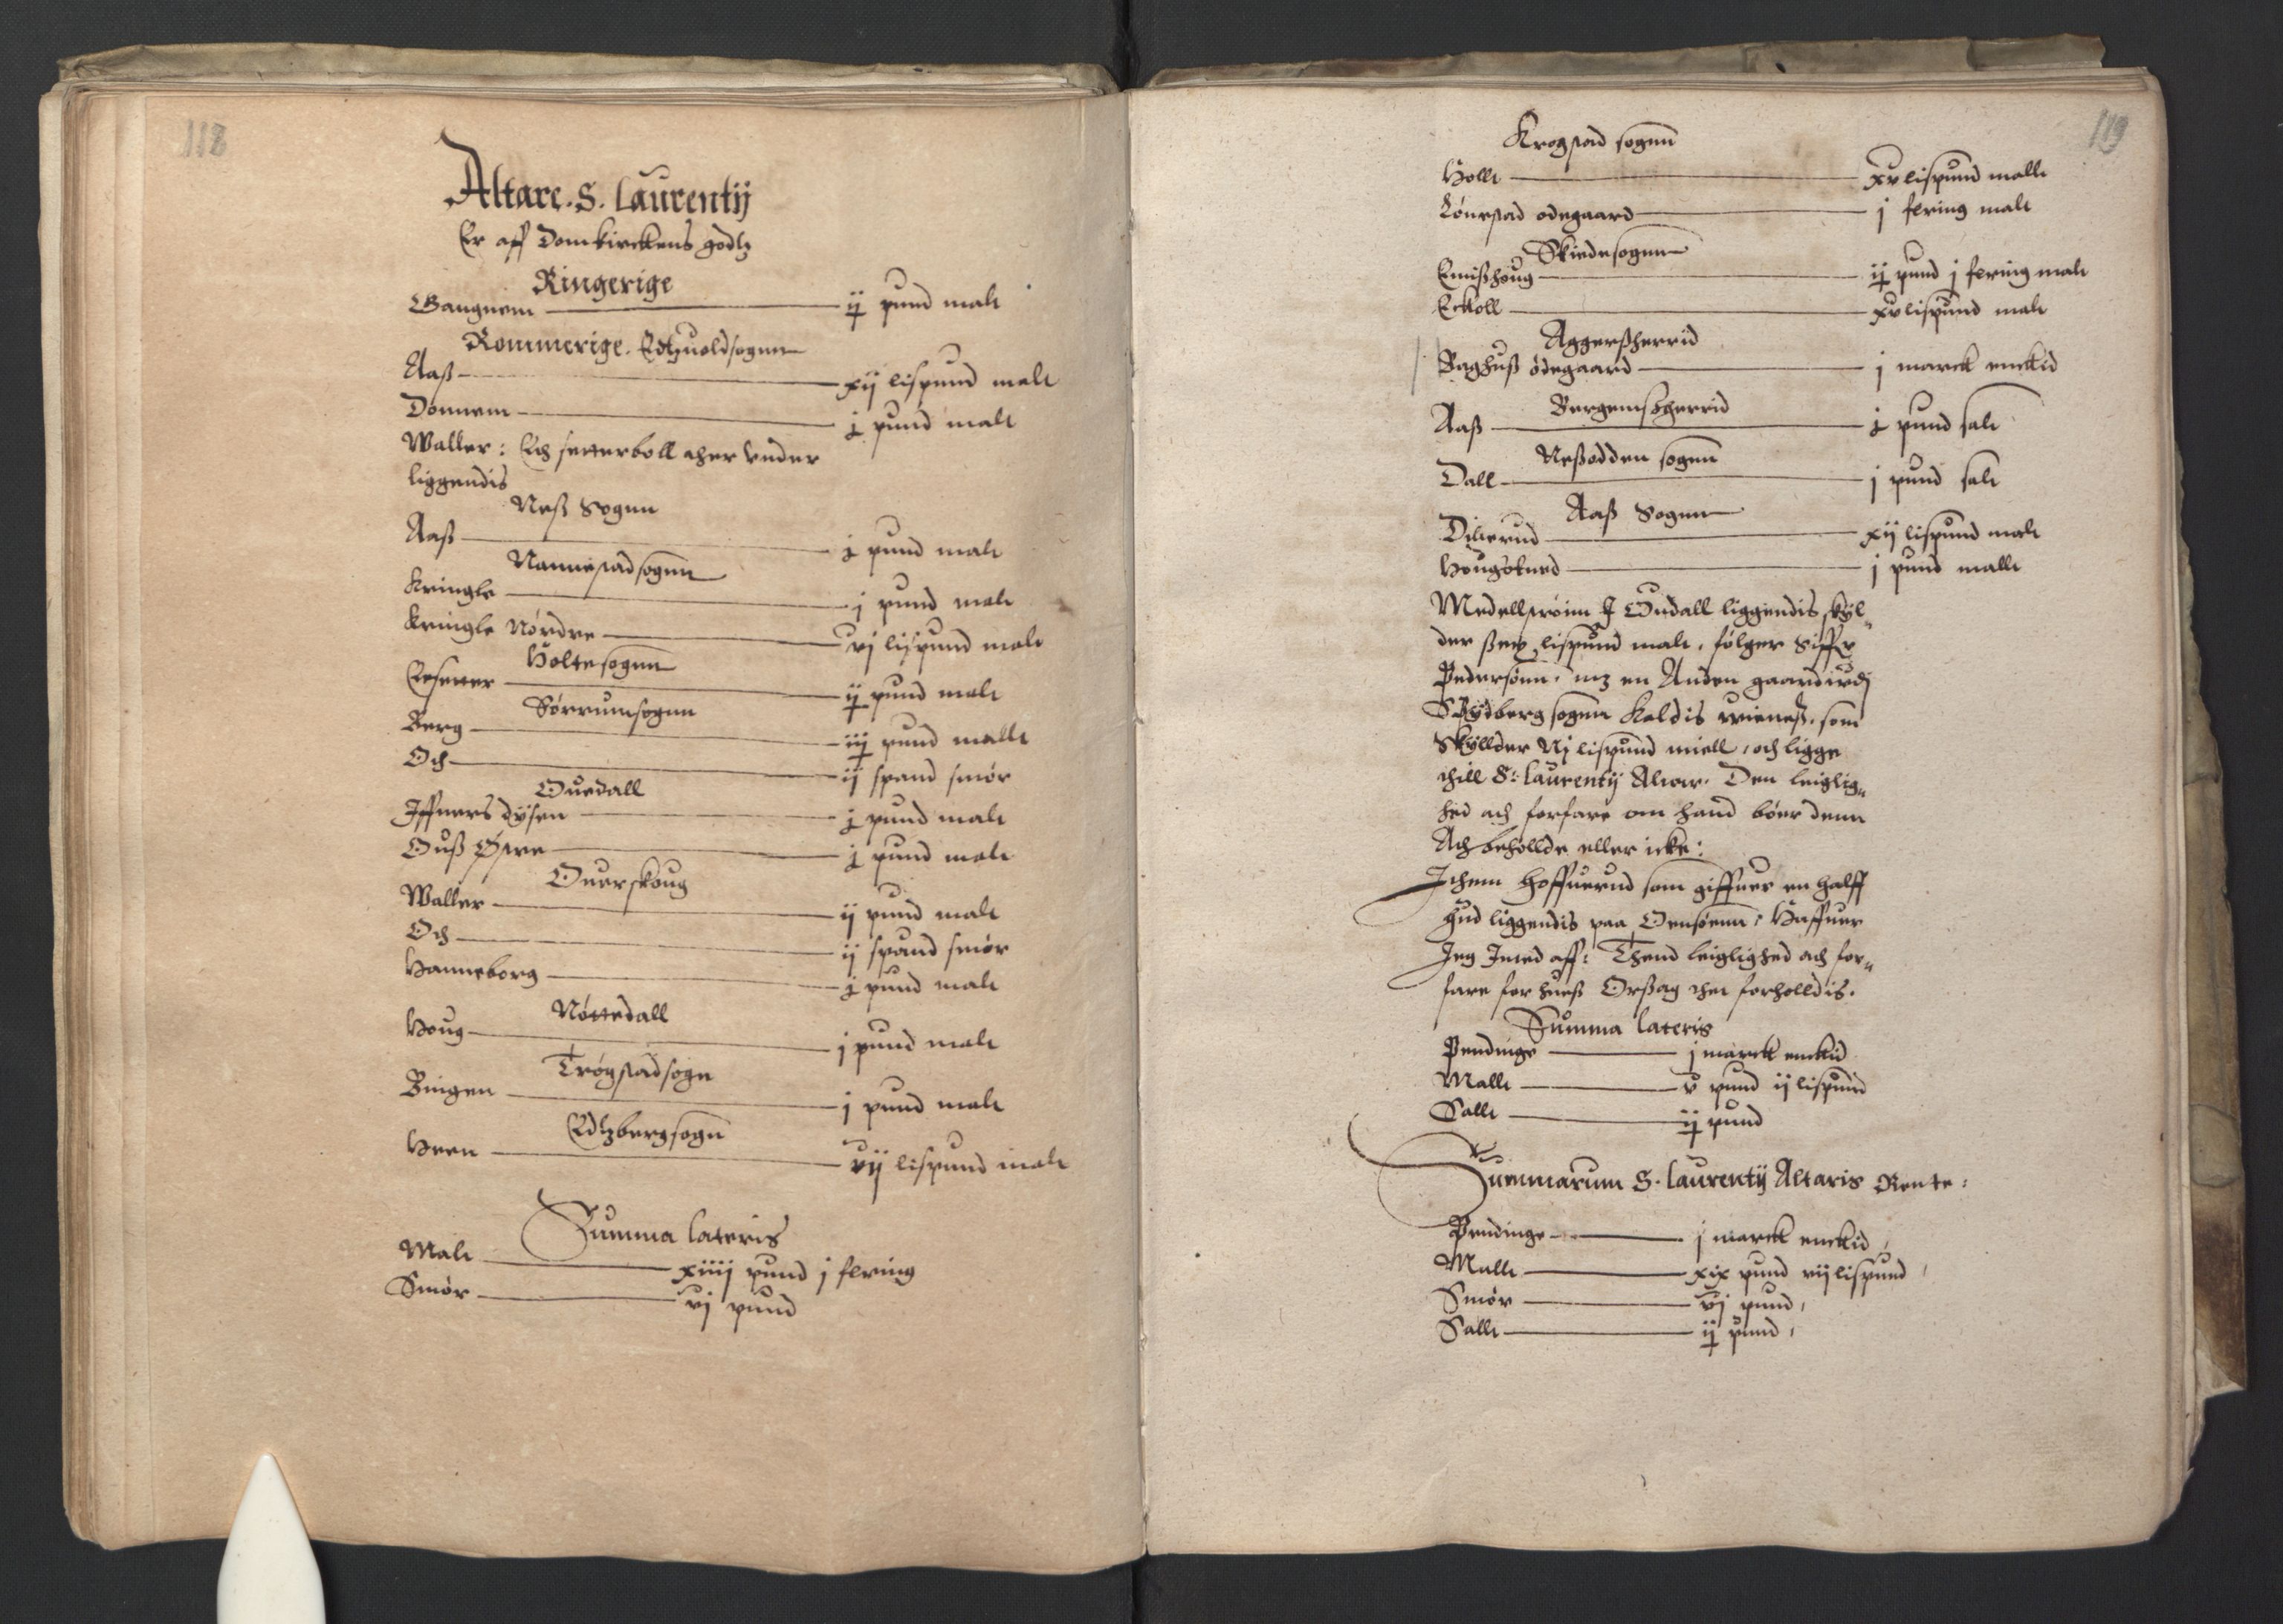 118
Altare. S. Laurentij
Er aff Domkirckens godtz
Ringerige
Gangnem ij pund malt
Rommerige. Edtzuoldsognn
Aaß xij lispund malt
Donnem j pund malt
Waller: Och setterboll ther vnder
liggendis
Neß Sognn
Aaß j pund malt
Nannestad sognn
Kringle j pund malt
Kringle Nørdre vj lispund malt
Holtesognn
Eesetter ij pund malt
Sørrumsognn
Berg iij pund malt
Och ij spand smør
Ouedall
Iffuers dysen j pund malt
Ouß Østre j pund malt
Ouerskoug
Waller ij pund malt
Och ij spand smør
Hanneborg j pund malt
Nøttedall
Houg j pund malt
Trøgstadsogn
Bingen j pund malt
Edtzbergsogn
Heen vij lispund malt
Summa lateris
Malt xiiij pund j fering
Smør vj pund
119
Krogstad sognn
Holle xv lispund mallt
Lønestad ødegaard j fering malt
Skiedesognn
Emißhoug ij pund j fering malt
Eckoll xv lispund malt
Aggerßherrid
Baghuß ødegaard j marck enckid
Bergemßherrid
Aaß j pund salt
Neßodden sognn
Dall j pund salt
Aaß Sognn
Dillerud xij lispund malt
Hougsterud j pund mallt
Medellstrøim I Oudall liggendis skyl„
der sex lispund malt. følger Siffr
Pedersønn. mz en Anden gaard vdj
Spydberg sognn Kaldis Wieneß. som
Skyllder Nj lispund miell, och ligge
thill S: Laurentij Altar. Den leiglig„
hed ath forfare om hand bøer denn
Ath behollde eller icke:
Ithem Hoffuerud som giffuer en halff
hud liggendis paa Oensøenn: Haffuer
Ieg Inted aff: Thend leiglighed ath for„
fare for hueß Orßag thet forholldis.
Summa lateris
Pendinge j marck enckid
Mallt v pund ij lispund
Sallt ij pund
Summarum S. Laurentij Altaris Rente:
Pendinge j marck enckid
Mallt xix pund vij lispund
Smør vj pund
Sallt ij pund